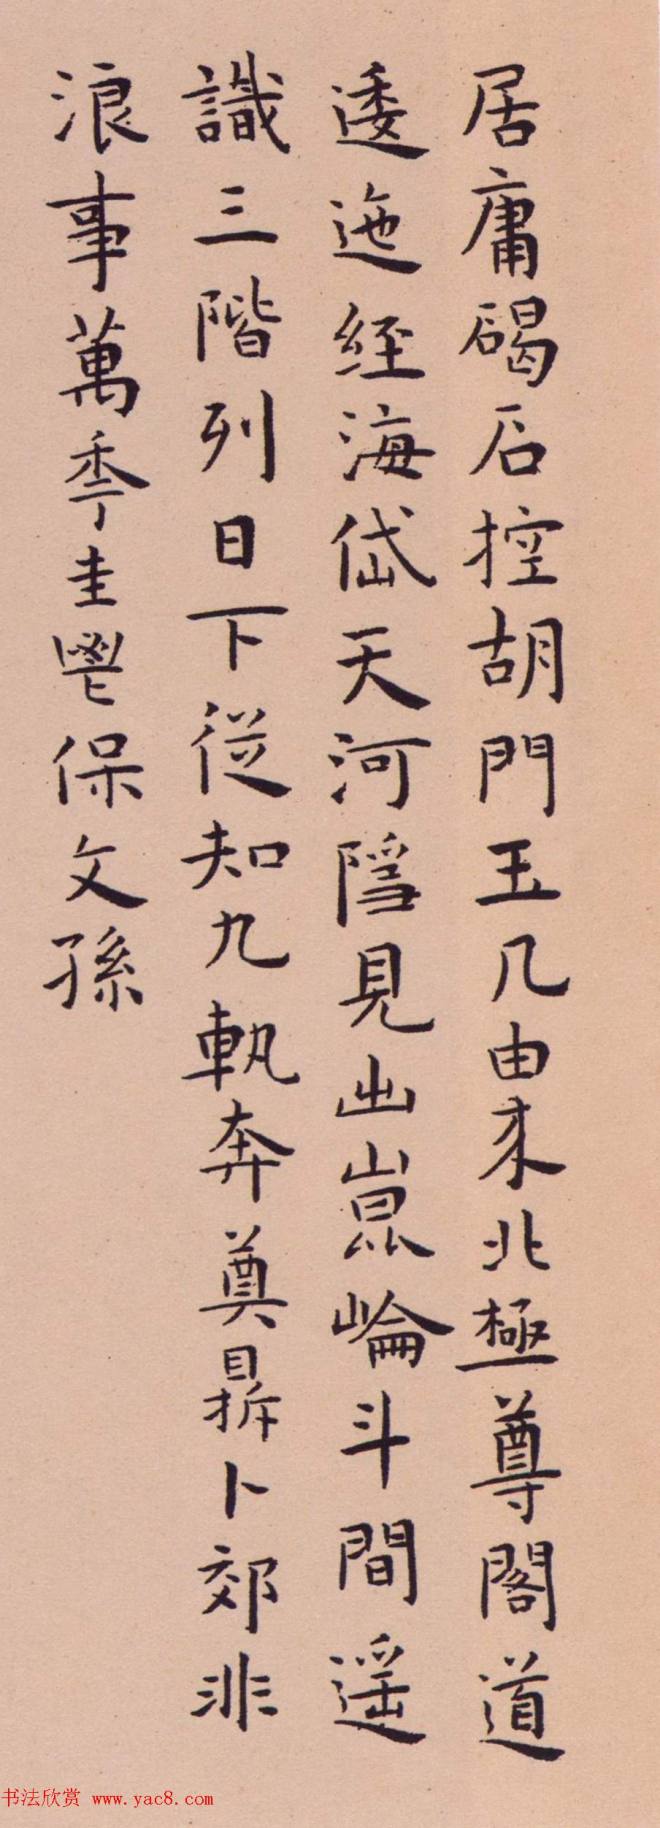 居庸碣石控胡門玉几由來北極尊閣道
逶迤經海岱天河隱見出崑崙斗間遥
識三階列日下從知九軌奔奠鼎卜郊非
浪事萬年圭鬯保文孫
书法欣赏 www.yac8.com